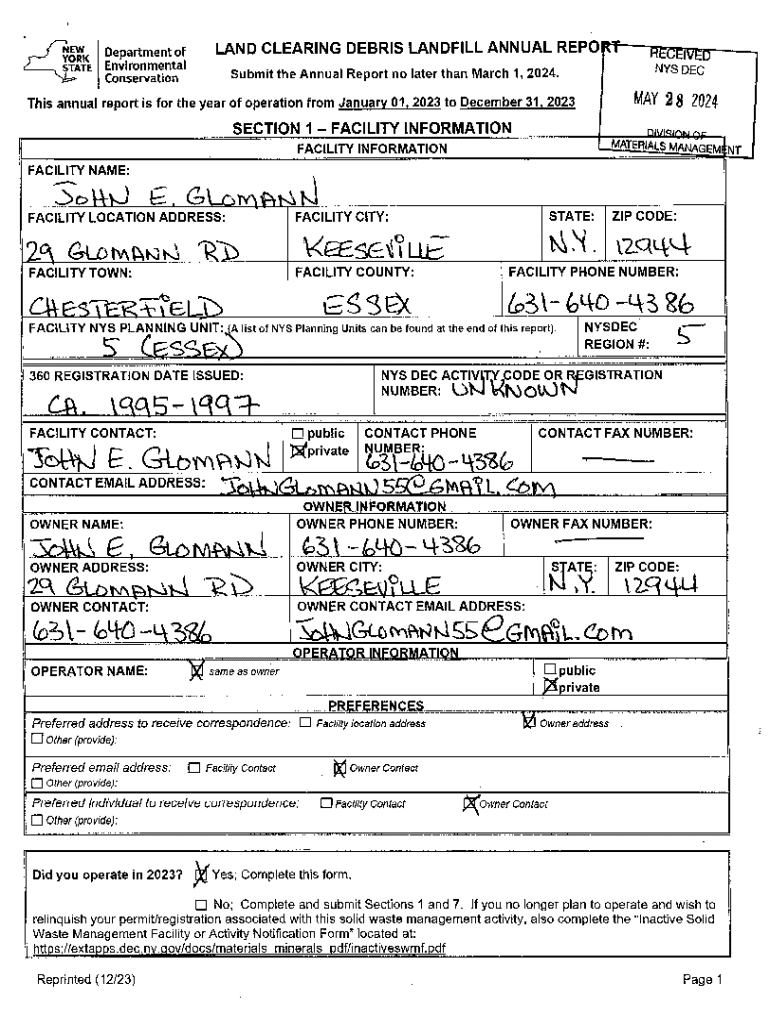 NEW YORK STATE
Department of Environmental Conservation
LAND CLEARING DEBRIS LANDFILL ANNUAL REPORT
Submit the Annual Report no later than March 1, 2024.
RECEIVED
NYS DEC
MAY 28 2024
DIVISION OF
MATERIALS MANAGEMENT
This annual report is for the year of operation from January 01, 2023 to December 31, 2023
SECTION 1 – FACILITY INFORMATION
FACILITY INFORMATION
FACILITY NAME:
JOHN E. GLOMANN
FACILITY LOCATION ADDRESS: FACILITY CITY: STATE: ZIP CODE:
29 GLOMANN RD KEESEVILLE N.Y. 12944
FACILITY TOWN: FACILITY COUNTY: FACILITY PHONE NUMBER:
CHESTERFIELD ESSEX 631-640-4386
FACILITY NYS PLANNING UNIT: (A list of NYS Planning Units can be found at the end of this report). NYSDEC REGION #: 5
5 (ESSEX)
360 REGISTRATION DATE ISSUED: NYS DEC ACTIVITY CODE OR REGISTRATION
NUMBER: UNKNOWN
CA. 1995-1997
FACILITY CONTACT: public CONTACT PHONE CONTACT FAX NUMBER:
JOHN E. GLOMANN private NUMBER: 631-640-4386
CONTACT EMAIL ADDRESS: JOHNGLOMANN55@GMAIL.COM
OWNER INFORMATION
OWNER NAME: OWNER PHONE NUMBER: OWNER FAX NUMBER:
JOHN E. GLOMANN 631-640-4386
OWNER ADDRESS: OWNER CITY: STATE: ZIP CODE:
29 GLOMANN RD KEESEVILLE N.Y. 12944
OWNER CONTACT: OWNER CONTACT EMAIL ADDRESS:
631-640-4386 JOHNGLOMANN55@GMAIL.COM
OPERATOR INFORMATION
OPERATOR NAME: same as owner public
private
PREFERENCES
Preferred address to receive correspondence: Facility location address Owner address
Other (provide):
Preferred email address: Facility Contact Owner Contact
Other (provide):
Preferred individual to receive correspondence: Facility Contact Owner Contact
Other (provide):
Did you operate in 2023? Yes; Complete this form.
No; Complete and submit Sections 1 and 7. If you no longer plan to operate and wish to
relinquish your permit/registration associated with this solid waste management activity, also complete the "Inactive Solid
Waste Management Facility or Activity Notification Form" located at:
https://extapps.dec.ny.gov/docs/materials_minerals_pdf/inactiveswmf.pdf
Reprinted (12/23) Page 1